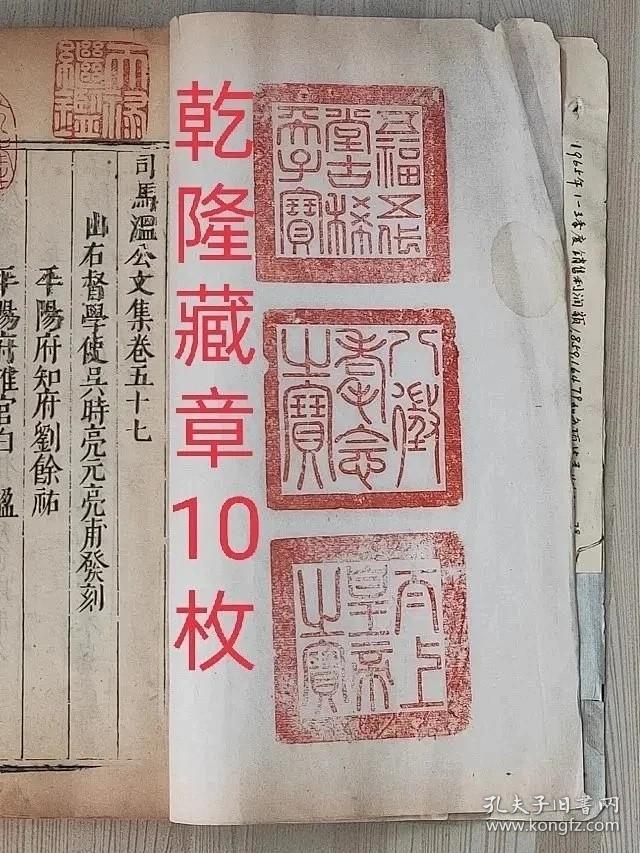 乾隆藏章10枚
五福五代
堂古稀
天子寶
八徵
耄念
之寶
太上
皇帝
之寶
天祿
繼鑑
司馬溫公文集卷五十七
山右督學使吳時亮元亮甫發刻
平陽府知府劉餘祐
平陽府推官白
孔夫子旧书网
www.kongfz.com